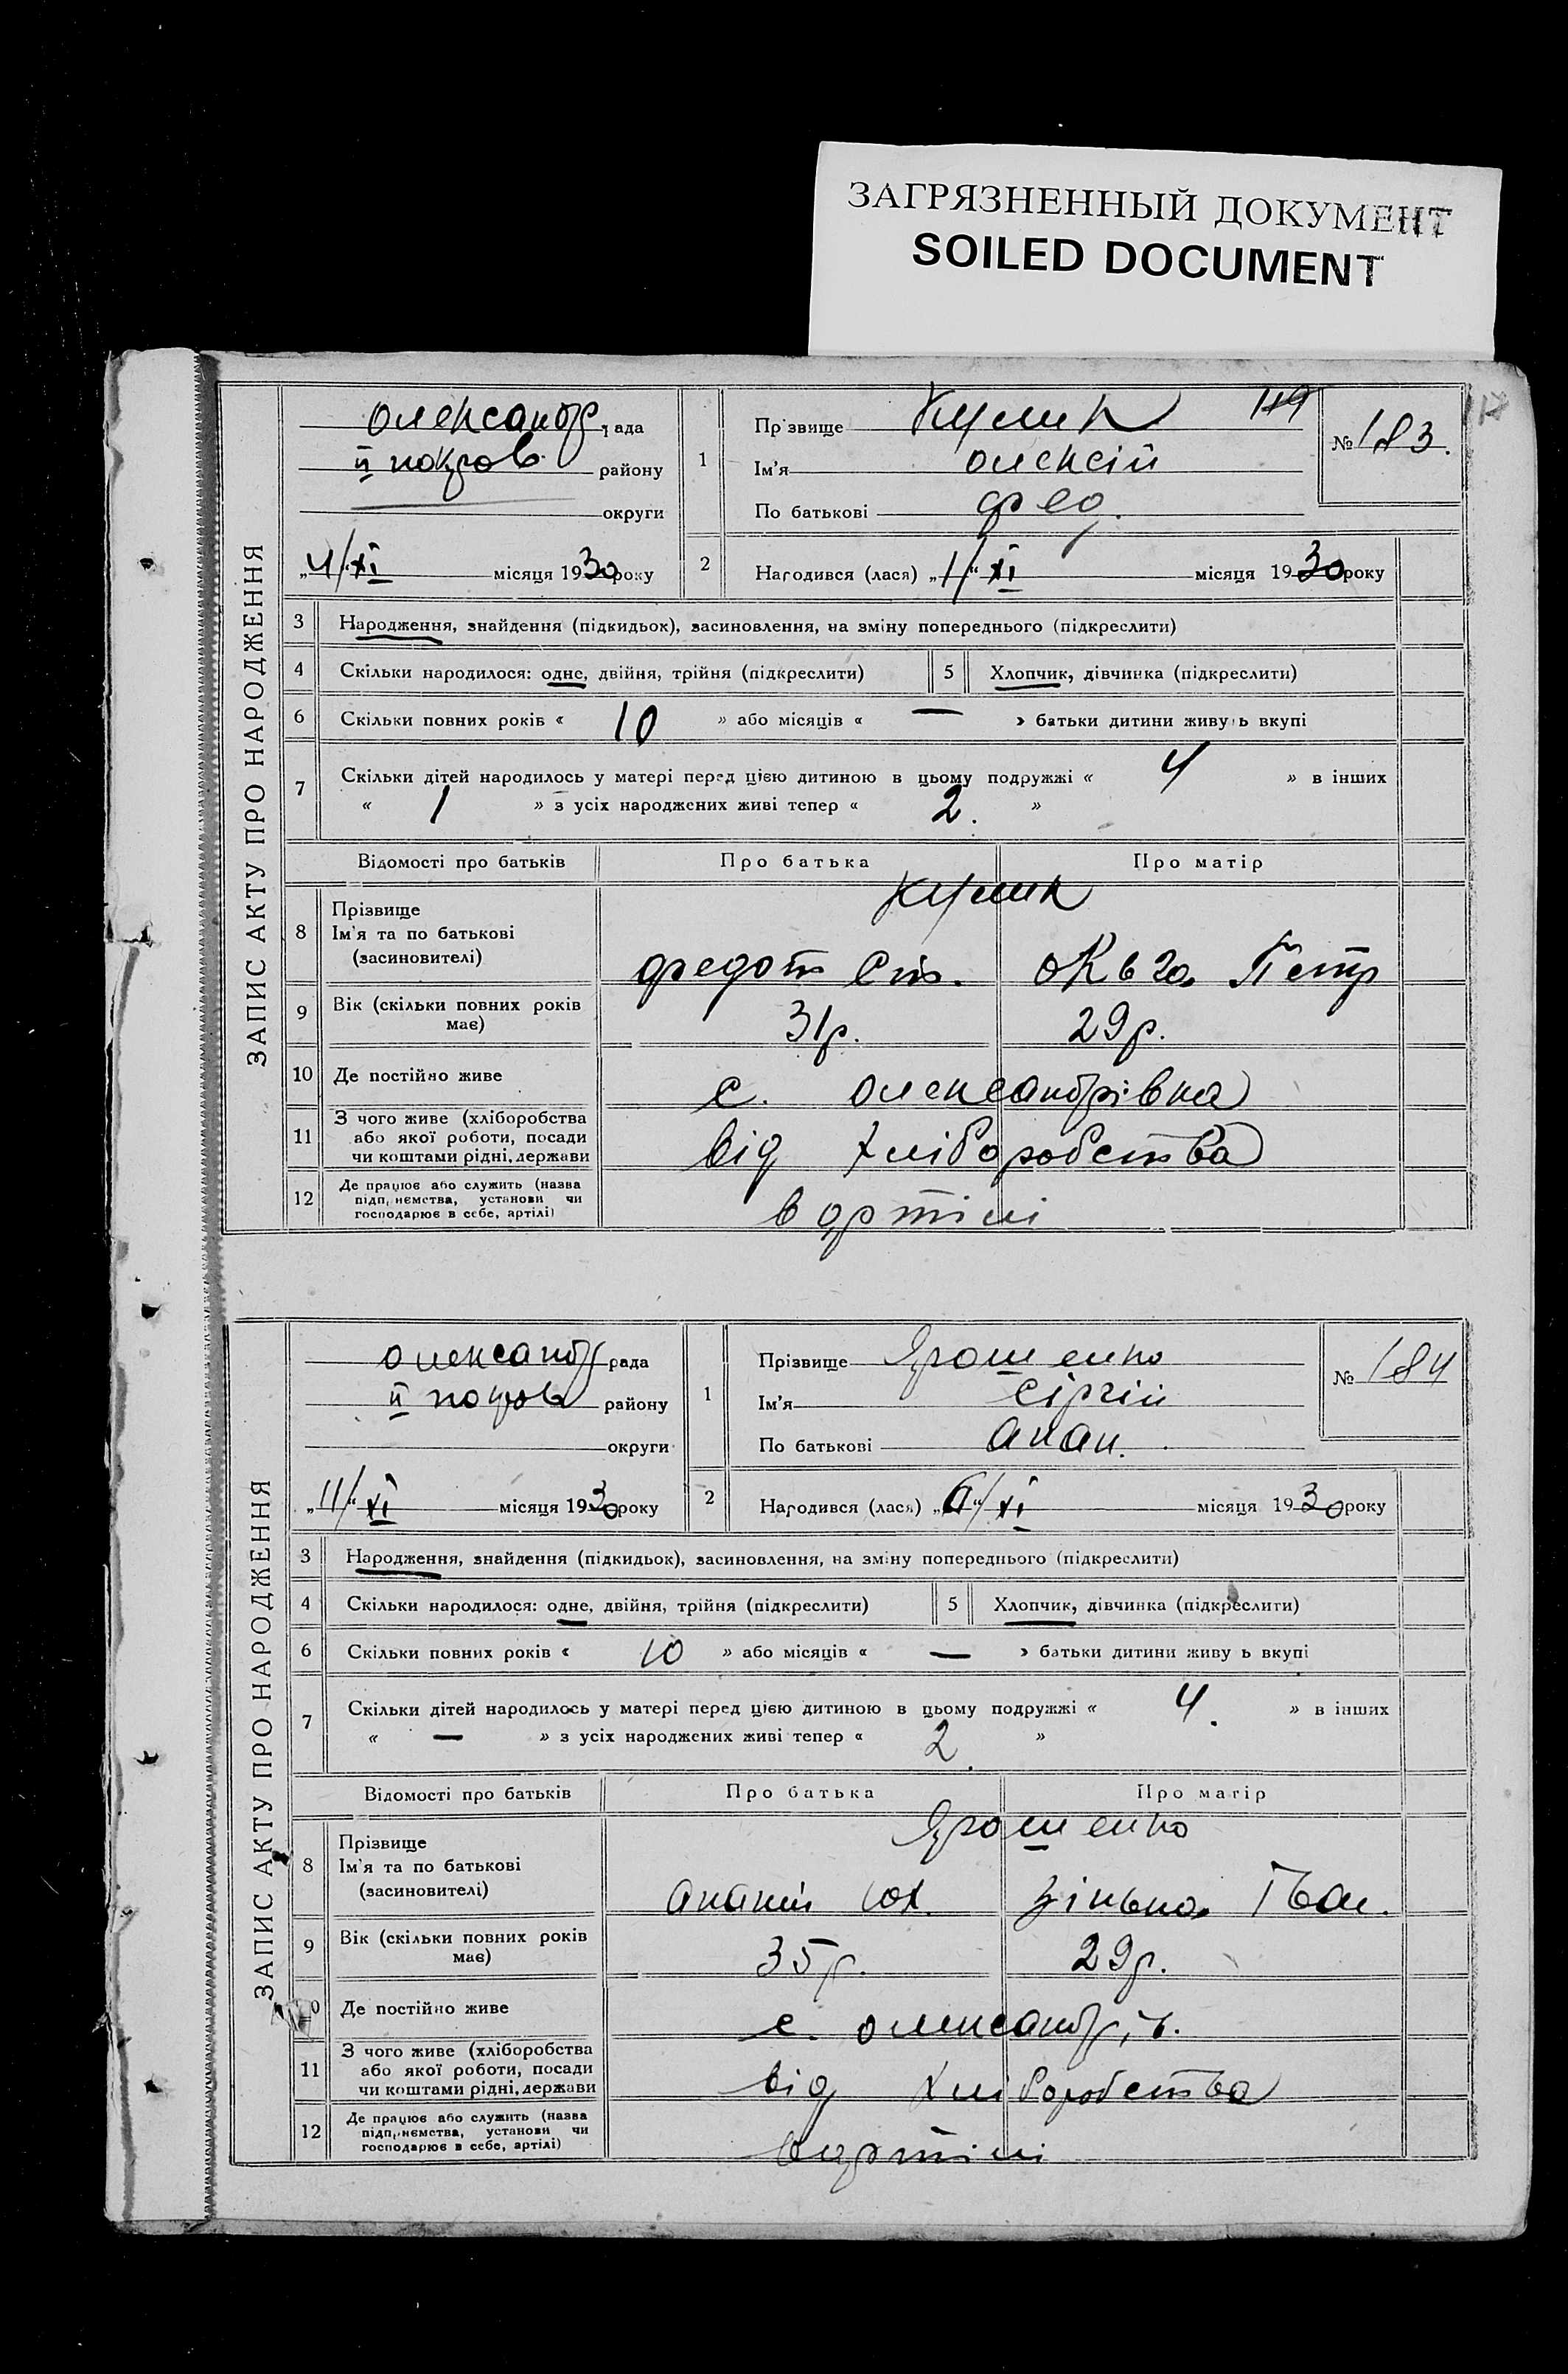 ЗАГРЯЗНЕННЫЙ ДОКУМЕНТ
SOILED DOCUMENT
ЗАПИС АКТУ ПРО НАРОДЖЕННЯ
олександр. рада
ІІ покров. району
округи
„4/“ XI місяця 1930 року
1
Прізвище Кулик 119
Ім'я олексій
По батькові фед.
№ 183.
2
Народився (лася) „1/“ XI місяця 1930 року
3 Народження, знайдення (підкидьок), засиновлення, на зміну попереднього (підкреслити)
4 Скільки народилося: одне, двійня, трійня (підкреслити) 5 Хлопчик, дівчинка (підкреслити)
6 Скільки повних років « 10 » або місяців « — » батьки дитини живуть вкупі
7 Скільки дітей народилось у матері перед цією дитиною в цьому подружжі « 4 » в інших
« 1 » з усіх народжених живі тепер « 2. »
Відомості про батьків Про батька Про матір
8 Прізвище Кулик
Ім'я та по батькові
(засиновителі) федот Ст. Петр
9 Вік (скільки повних років має) 31р. 29р.
10 Де постійно живе с. олександрівка
11 З чого живе (хліборобства
або якої роботи, посади
чи коштами рідні, держави від хліборобства
12 Де працює або служить (назва
підприємства, установи чи
господарює в себе, артілі) в артілі
ЗАПИС АКТУ ПРО НАРОДЖЕННЯ
олександр рада
ІІ покров району
округи
„11/“ XI місяця 1930 року
1
Прізвище Ярошенко
Ім'я Сіргій
По батькові Анан.
№ 184
2
Народився (лася) „6/“ XI місяця 1930 року
3 Народження, знайдення (підкидьок), засиновлення, на зміну попереднього (підкреслити)
4 Скільки народилося: одне, двійня, трійня (підкреслити) 5 Хлопчик, дівчинка (підкреслити)
6 Скільки повних років « 10 » або місяців « — » батьки дитини живу ь вкупі
7 Скільки дітей народилось у матері перед цією дитиною в цьому подружжі « 4. » в інших
« — » з усіх народжених живі тепер « 2. »
Відомості про батьків Про батька Про матір
8 Прізвище Ярошенко
Ім'я та по батькові
(засиновителі) Ананій Юх. Зінька Іван.
9 Вік (скільки повних років має) 35р. 29р.
Де постійно живе с. олександрів.
11 З чого живе (хліборобства
або якої роботи, посади
чи коштами рідні, держави від хліборобства
12 Де працює або служить (назва
підприємства, установи чи
господарює в себе, артілі) в артілі